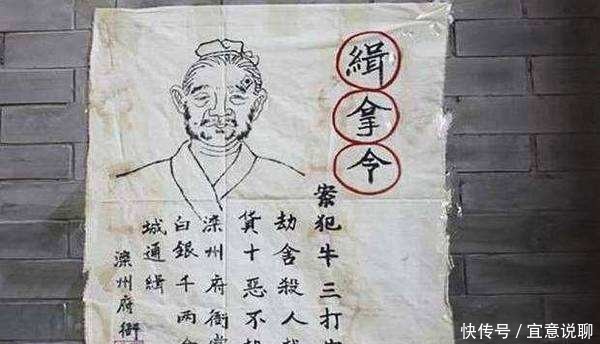 緝拿令
案犯牛三打
劫舍殺人
貨十惡不
滦州府衙
白銀千两
城通緝
滦州府衙
快传号/宜意说聊